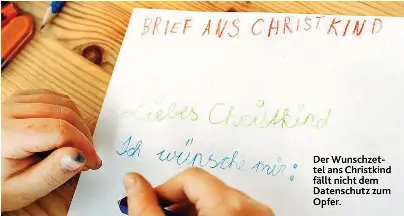 BRIEF ANS CHRISTKIND
Liebes Christkind
Ich wünsche mir:
Der Wunschzet-
tel ans Christkind
fällt nicht dem
Datenschutz zum
Opfer.